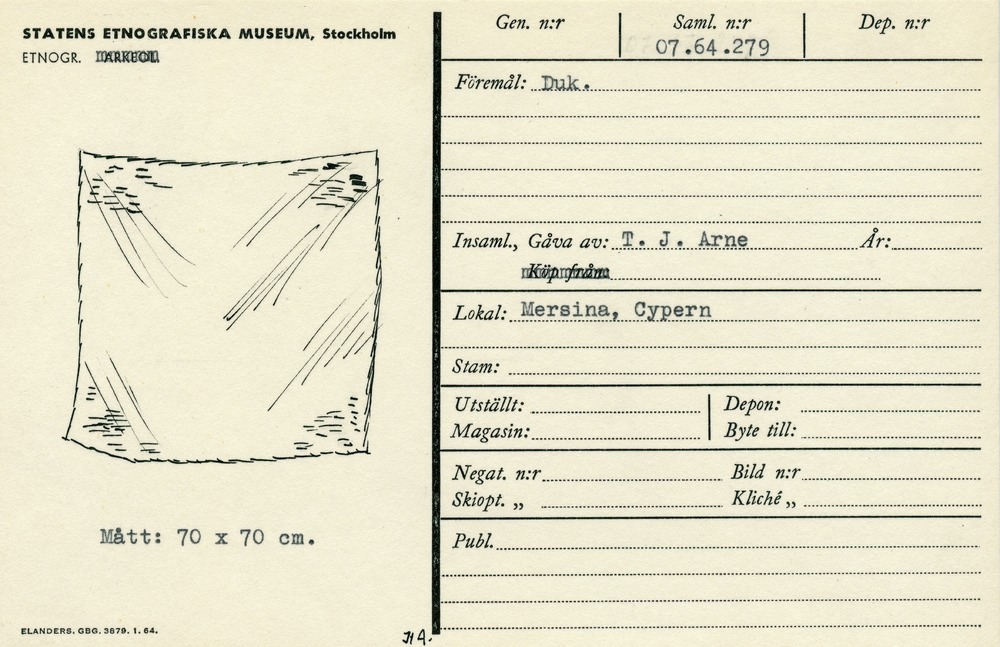 STATENS ETNOGRAFISKA MUSEUM, Stockholm
ETNOGR. ARKEOL.
Mått: 70 x 70 cm.
ELANDERS. GBG. 3679. 1. 64.
Gen. n:r
Saml. n:r
07.64.279
Dep. n:r
Föremål: Duk.
Insaml., Gåva av: T. J. Arne År:
Köp från:
Lokal: Mersina, Cypern
Stam:
Utställt: Depon:
Magasin: Byte till:
Negat. n:r Bild n:r
Skiopt. „ Kliché „
Publ.